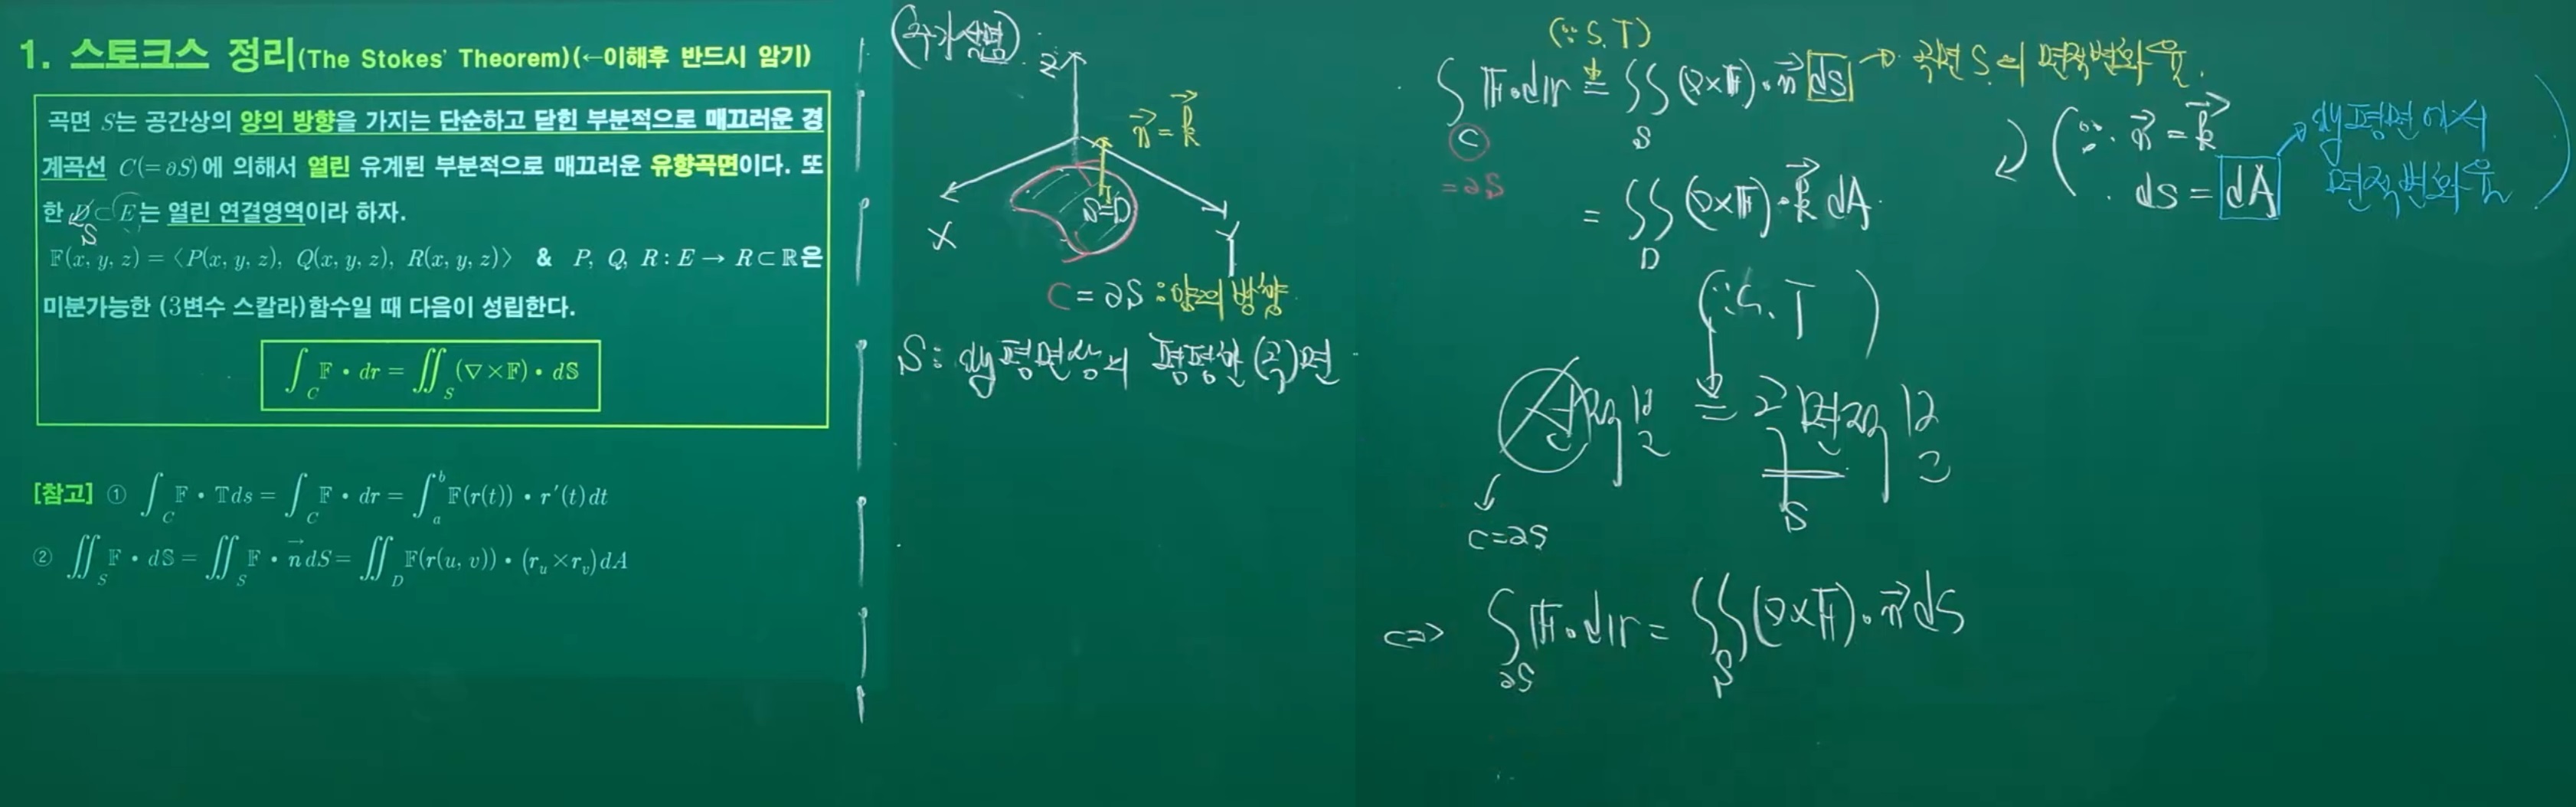 1. 스토크스 정리(The Stokes' Theorem)(←이해후 반드시 암기)
곡면 S는 공간상의 양의 방향을 가지는 단순하고 닫힌 부분적으로 매끄러운 경
계곡선 C(=∂S)에 의해서 열린 유계된 부분적으로 매끄러운 유향곡면이다. 또
한 D⊂E는 열린 연결영역이라 하자.
S
𝔽(x, y, z) = ⟨P(x, y, z), Q(x, y, z), R(x, y, z)⟩ & P, Q, R : E → R⊂ℝ은
미분가능한 (3변수 스칼라)함수일 때 다음이 성립한다.
∫_C 𝔽 • dr = ∬_S (∇×𝔽) • d𝕊
[참고] ① ∫_C 𝔽 • 𝕋ds = ∫_C 𝔽 • dr = ∫_a^b 𝔽(r(t)) • r′(t)dt
② ∬_S 𝔽 • d𝕊 = ∬_S 𝔽 • n⃗ dS = ∬_D 𝔽(r(u, v)) • (r_u×r_v)dA
(추가설명)
Z
n⃗ = k⃗
S=D
X
Y
C = ∂S : 양의 방향
S : xy평면상의 평평한 (곡)면
(∵ S.T)
∫_C 𝔽•dr = ∬_S (∇×𝔽)•n⃗ dS → 곡면 S의 면적변화율
=∂S
(∵ n⃗ = k⃗
dS = dA → xy평면에서
면적변화율)
= ∬_D (∇×𝔽)•k⃗ dA
(∵ S.T)
선적분 = 면적분
C=∂S
S
⇔ ∫_∂S 𝔽•dr = ∬_S (∇×𝔽)•n⃗ dS